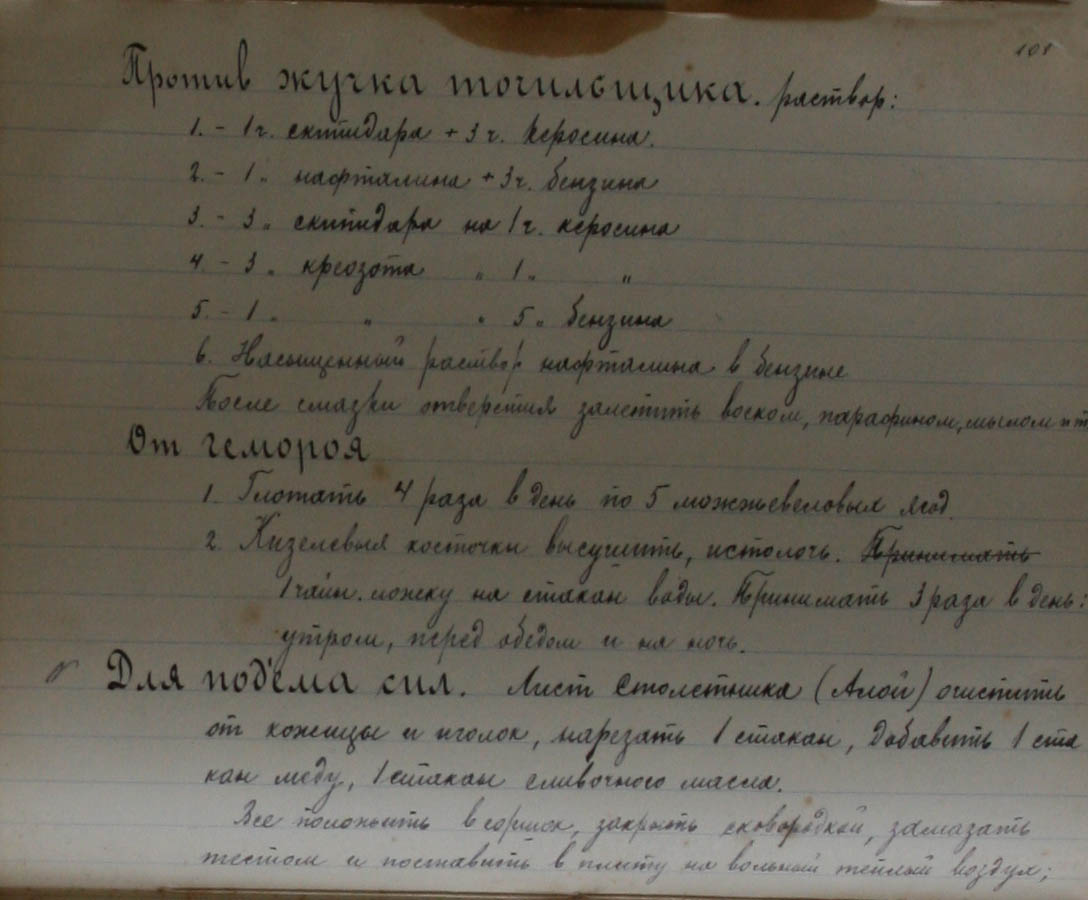 101
Против жучка точильщика. раствор:
1. – 1 ч. скипидара + 3 ч. керосина.
2. – 1 „ нафталина + 3 ч. бензина
3. – 3 „ скипидара на 1 ч. керосина
4. – 3 „ креозота „ 1 „ „
5. – 1 „ „ „ 5 „ бензина
6. Насыщенный раствор нафталина в бензине
После смазки отверстия залепить воском, парафином, мылом и т
От гемороя
1. Глотать 4 раза в день по 5 можжевеловых ягод.
2. Кизелевыя косточки высушить, истолочь. Принимать
1 чайн. ложку на стакан воды. Принимать 3 раза в день:
утром, перед обедом и на ночь.
Для под'ема сил. Лист Столетника (Алой) очистить
от кожицы и иголок, нарезать 1 стакан, добавить 1 ста
кан меду, 1 стакан сливочного масла.
Все положить в горшок, закрыть сковородкой, замазать
тестом и поставить в плиту на вольный теплый воздух;